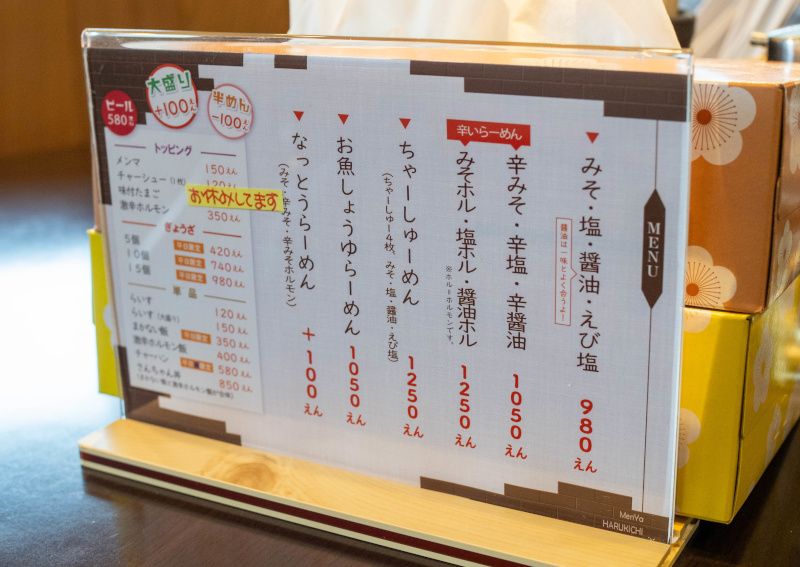 MENU
みそ・塩・醤油・えび塩 980えん
醤油は一味とよく合うよ！
辛いらーめん
辛みそ・辛塩・辛醤油 1050えん
みそホル・塩ホル・醤油ホル 1250えん
※ホル=ホルモンです。
ちゃーしゅーめん 1250えん
(ちゃーしゅー4枚、みそ・塩・醤油・えび塩)
お魚しょうゆらーめん 1050えん
なっとうらーめん +100えん
(みそ・辛みそ・辛みそホルモン)
ビール 580えん
大盛り +100えん
半めん -100えん
トッピング
メンマ 150えん
チャーシュー(1枚) 120えん
味付たまご
お休みしてます
激辛ホルモン 350えん
ぎょうざ
5個 平日限定 420えん
10個 平日限定 740えん
15個 平日限定 980えん
単品
らいす 120えん
らいす(大盛り) 150えん
まかない飯 平日限定 350えん
激辛ホルモン飯 400えん
チャーハン 平日限定 580えん
さんちゃん丼 850えん
(まかない飯と激辛ホルモン飯が合体)
MenYa
HARUKICHI